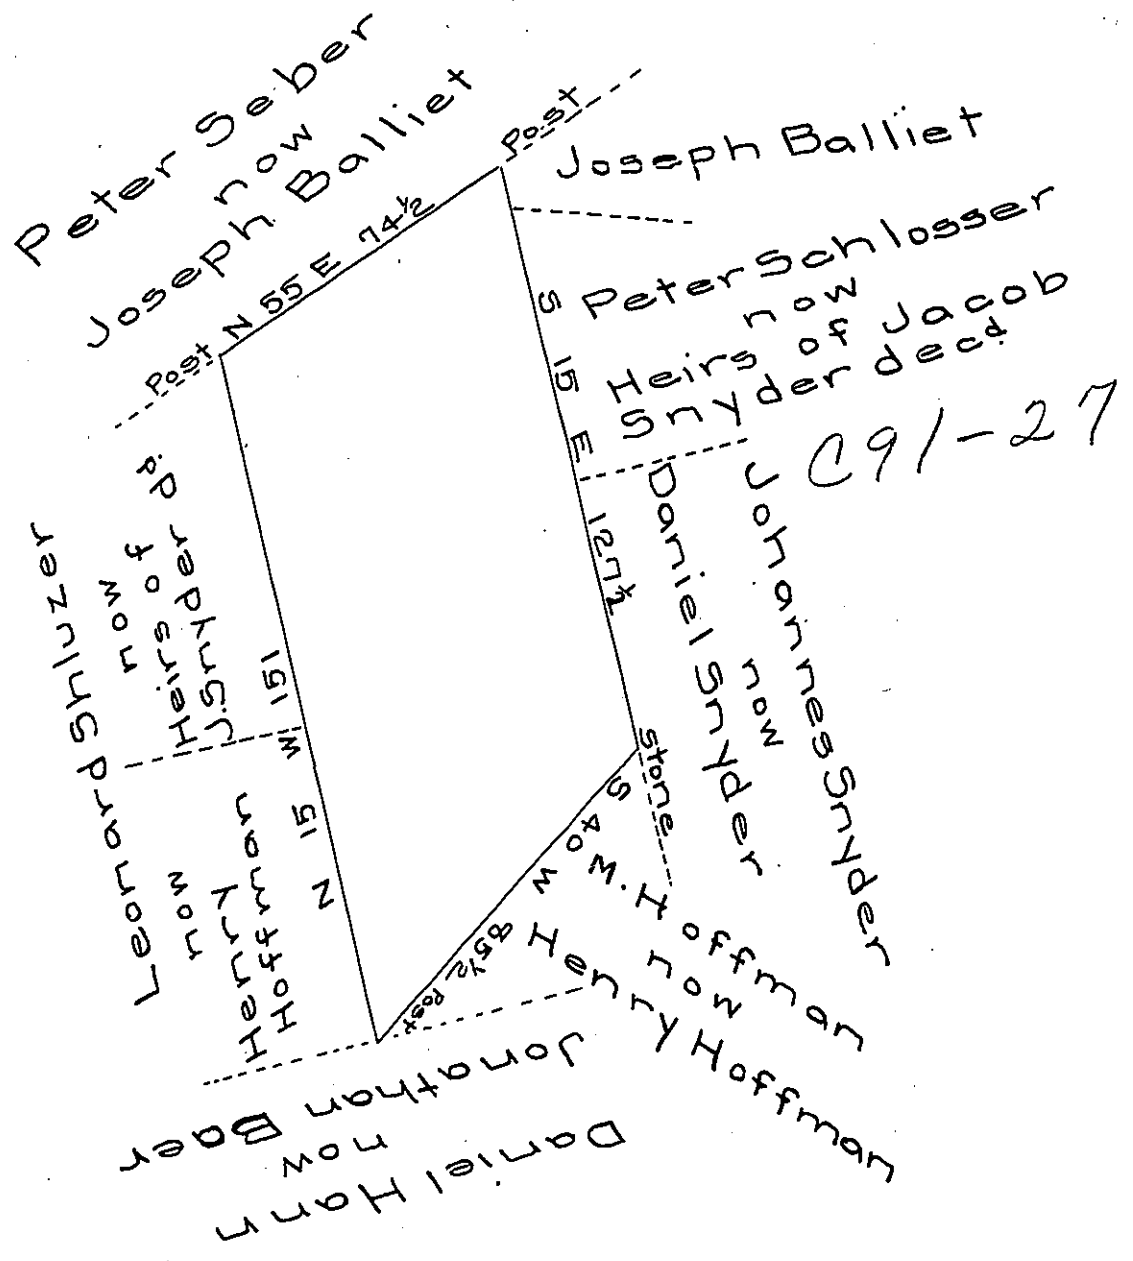 Peter Seber
now
Joseph Balliet
Post
N 55 E 74½
Post
Joseph Balliet
Peter Schlosser
now
Heirs of Jacob
Snyder decd.
C91-27
S 15 E 127½
Johanness Snyder
now
Daniel Snyder
Stone
S 40 W 85½
W. Hoffman
now
Henry Hoffman
Post
Daniel Hann
now
Jonathan Baer
N 15 W 151
Leonard Shluzer
now
Henry
Hoffman
now
Heirs of
J. Snyder d.d.